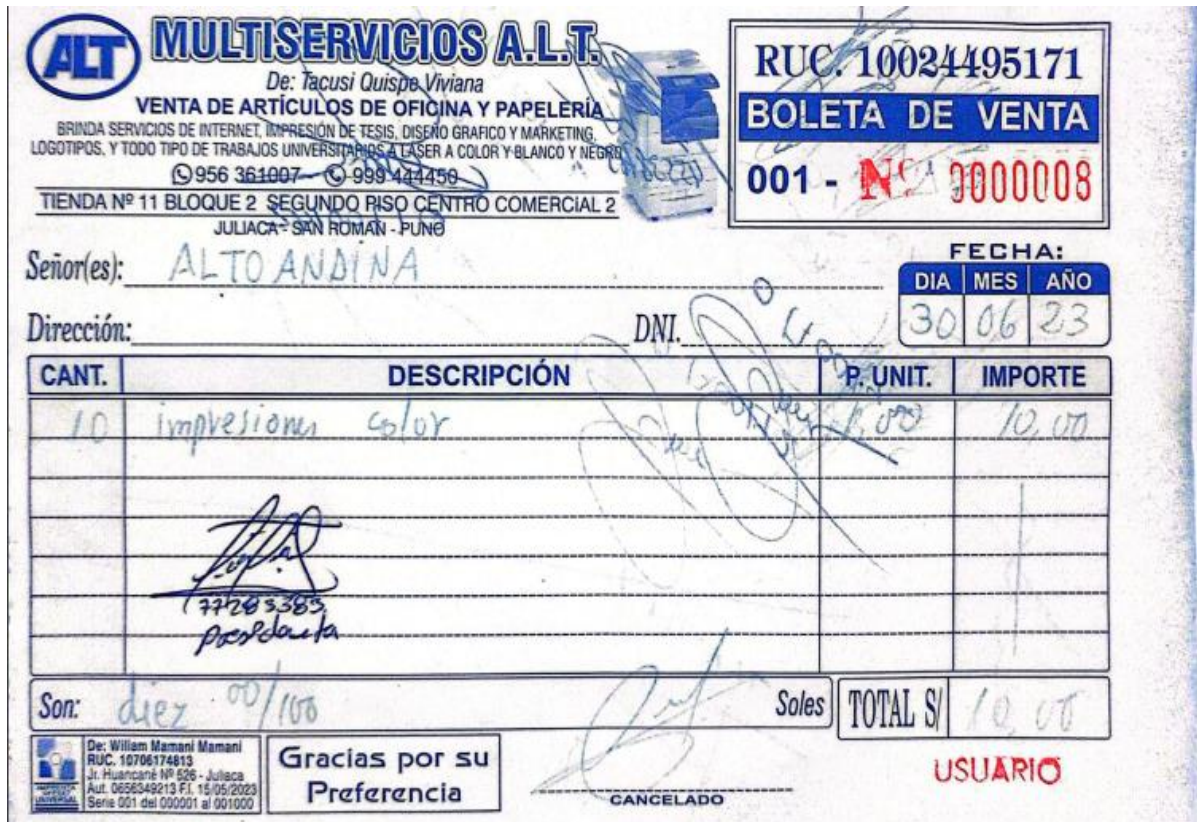 ALT
MULTISERVICIOS A.L.T.
De: Tacusi Quispe Viviana
VENTA DE ARTÍCULOS DE OFICINA Y PAPELERÍA
BRINDA SERVICIOS DE INTERNET, IMPRESIÓN DE TESIS, DISEÑO GRAFICO Y MARKETING,
LOGOTIPOS, Y TODO TIPO DE TRABAJOS UNIVERSITARIOS A LASER A COLOR Y BLANCO Y NEGRO
956 361007 - 999 444450
TIENDA Nº 11 BLOQUE 2 SEGUNDO PISO CENTRO COMERCIAL 2
JULIACA - SAN ROMAN - PUNO
RUC. 10024495171
BOLETA DE VENTA
001 - Nº 0000008
Señor(es): ALTO ANDINA
FECHA:
DIA MES AÑO
30 06 23
Dirección: DNI.
CANT. DESCRIPCIÓN P. UNIT. IMPORTE
10 impresiones color 1,00 10,00
77283383
Presidenta
Son: diez 00/100 Soles TOTAL S/ 10,00
De: Wiliam Mamani Mamani
RUC. 10706174813
Jr. Huancané Nº 526 - Juliaca
Aut. 0656349213 F.I. 15/05/2023
Serie 001 del 000001 al 001000
Gracias por su
Preferencia
CANCELADO
USUARIO